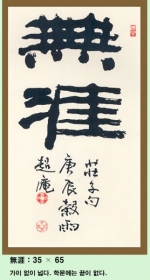 無涯
莊子句
庚辰穀雨
超庵
無涯 : 35 × 65
가이 없이 넓다. 학문에는 끝이 없다.